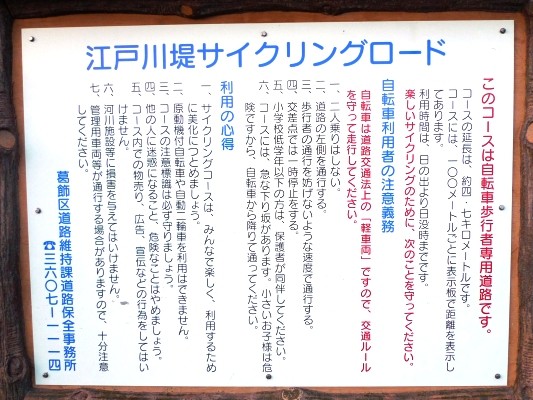 江戸川堤サイクリングロード
このコースは自転車歩行者専用道路です。
コースの延長は、約四・七キロメートルです。
コースには、一〇〇メートルごとに表示板で距離を表示し
てあります。
利用時間は、日の出より日没時までです。
楽しいサイクリングのために、次のことを守ってください。
自転車利用者の注意義務
自転車は道路交通法上の「軽車両」ですので、交通ルール
を守って走行してください。
一、二人乗りはしない。
二、道路の左側を通行する。
三、歩行者の通行を妨げないような速度で通行する。
四、交差点では一時停止をする。
五、小学校低学年以下の方は、保護者が同伴してください。
六、コースには、急な下り坂があります。小さいお子様は危
険ですから、自転車から降りて通ってください。
利用の心得
一、サイクリングコースは、みんなで楽しく、利用するため
に美化につとめましょう。
二、原動機付自転車や自動二輪車を利用はできません。
三、コースの注意標識は必ず守りましょう。
四、他の人に迷惑になること、危険なことはやめましょう。
五、コース内での物売り、広告、宣伝などの行為をしてはい
けません。
六、河川施設等に損害を与えてはいけません。
七、管理用車両等が通行する場合がありますので、十分注意
してください。
葛飾区道路維持課道路保全事務所
☎三六〇七ー一一一四